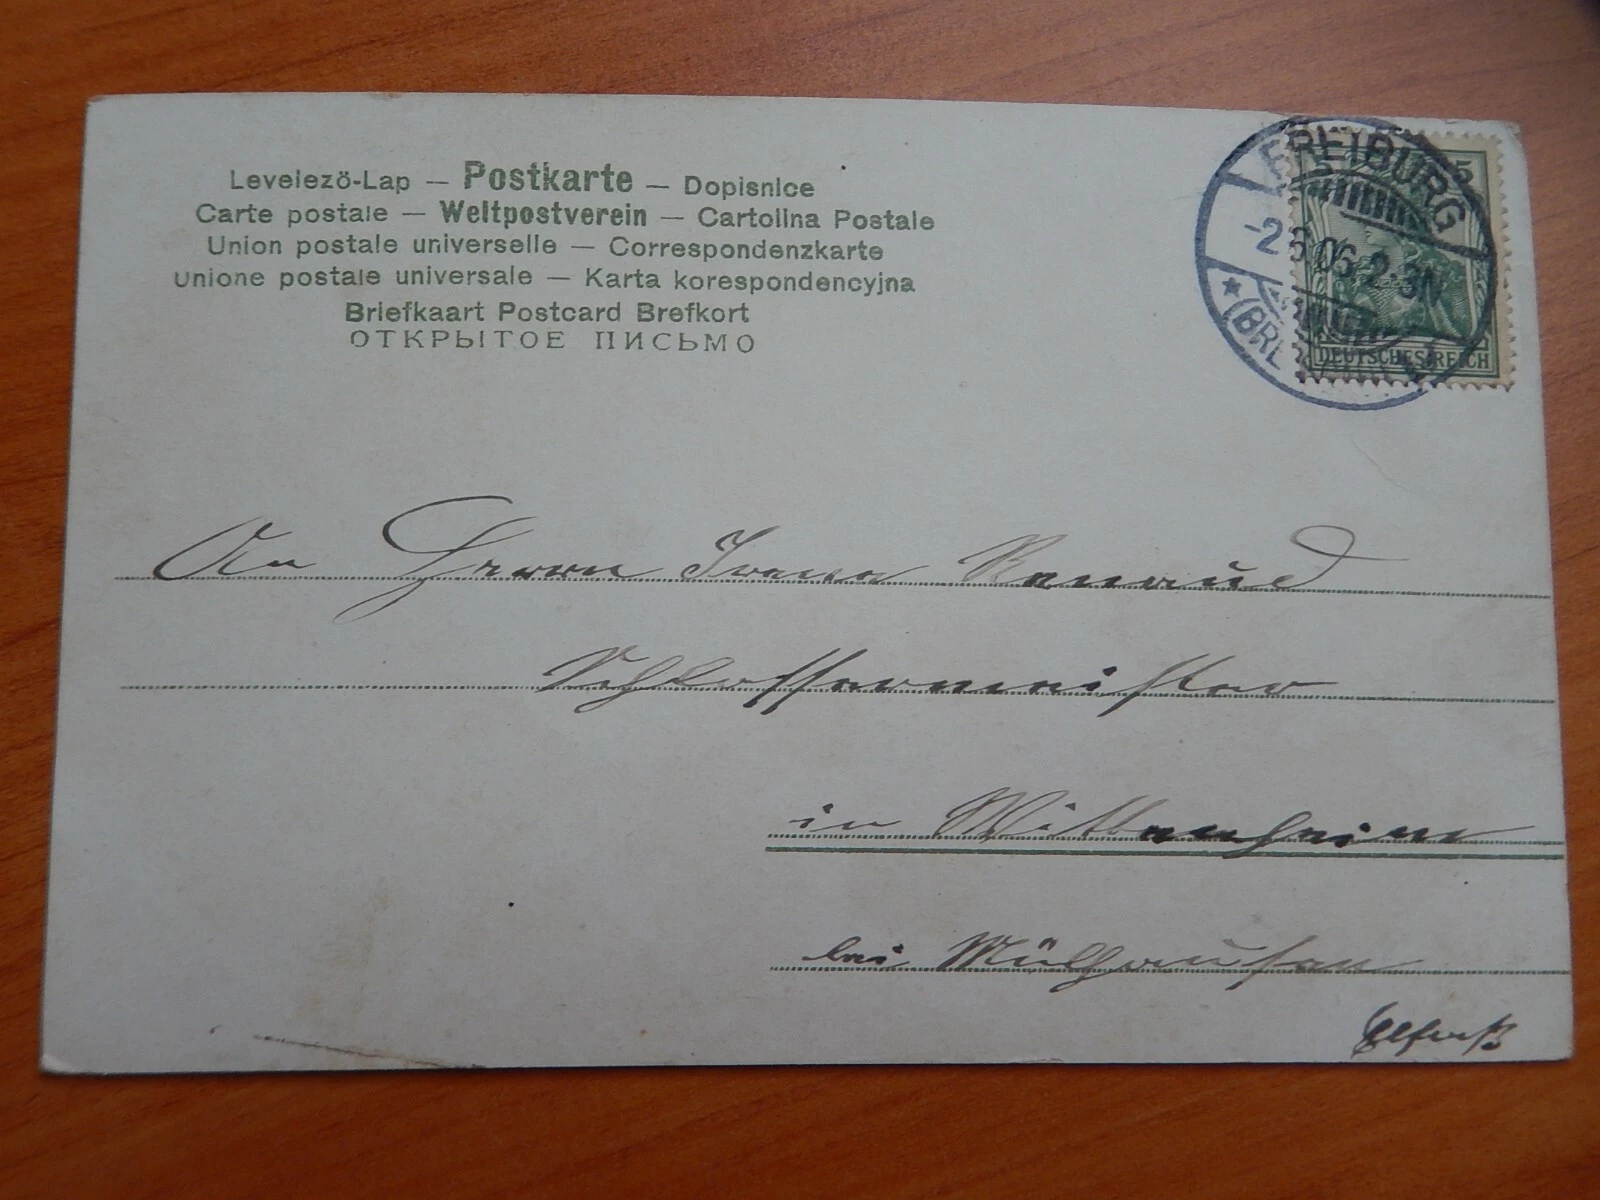 Levelezö-Lap — Postkarte — Dopisnice
Carte postale — Weltpostverein — Cartolina Postale
Union postale universelle — Correspondenzkarte
Unione postale universale — Karta korespondencyjna
Briefkaart Postcard Brefkort
ОТКРЫТОЕ ПИСЬМО
FREIBURG
06. 2-3N
5
DEUTSCHES REICH
An Herrn Renaud
Schlossermeister
in Wittenheim
bei Mülhausen
Elsaß